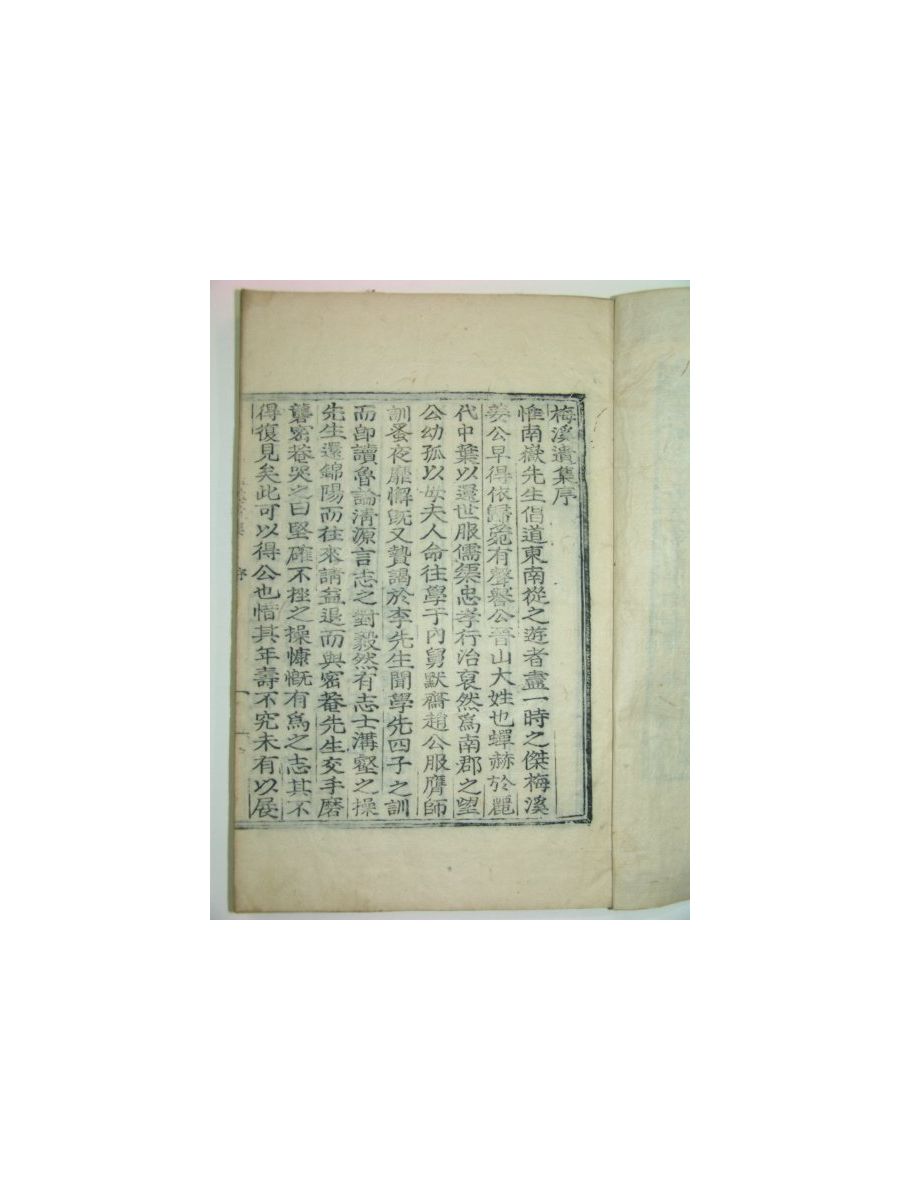 梅溪遺集序
惟南嶽先生倡道東南從之遊者盡一時之傑梅溪
姜公早得依歸菀有聲譽公晉山大姓也蟬赫於麗
代中葉以還世服儒術忠孝行治裒然爲南郡之望
公幼孤以母夫人命往學于內舅默齋趙公服膺師
訓蚤夜靡懈旣又贄謁於李先生聞學先四子之訓
而卽讀魯論淸源言志之對毅然有志士溝壑之操
先生還錦陽而往來請益退而與密菴先生交手磨
礱密菴哭之曰堅確不挫之操慷慨有爲之志其不
得復見矣此可以得公也惜其年壽不究未有以展
序
一